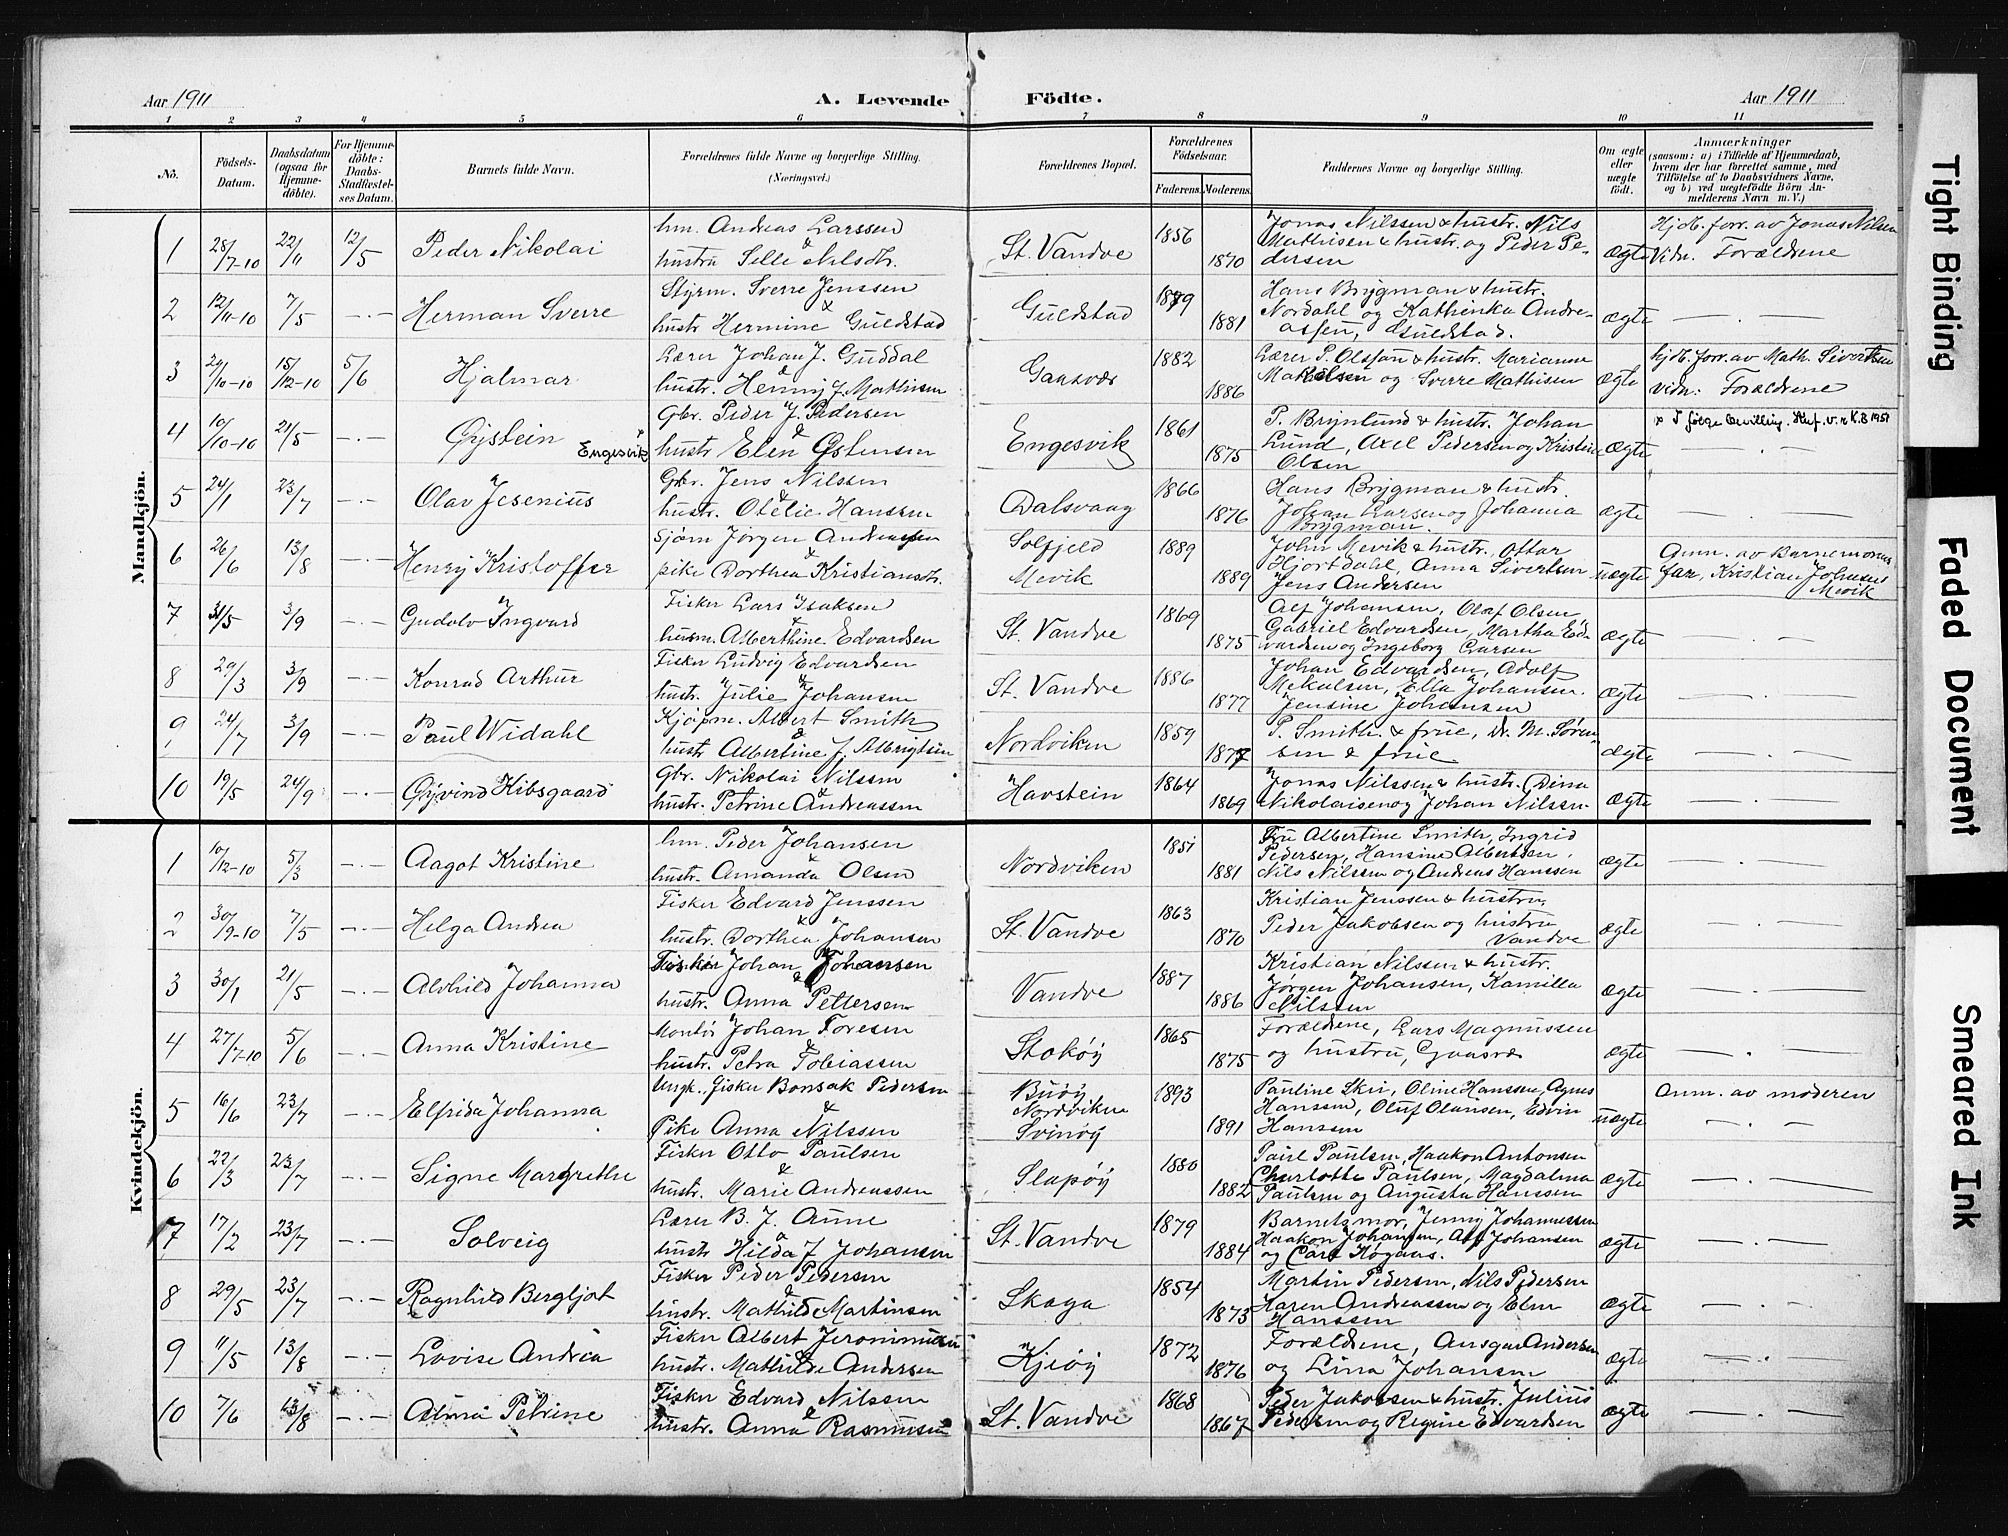 Aar 1911
A. Levende Födte.
Aar 1911
1 2 3 4 5 6 7 8 9 10 11
No.
Födsels-Datum.
Daabsdatum (ogsaa for Hjemmedöbte).
For Hjemmedöbte: Daabs-Stadfæstelses Datum.
Barnets fulde Navn.
Forældrenes fulde Navne og borgerlige Stilling. (Næringsvei.)
Forældrenes Bopæl.
Forældrenes Födselsaar.
Faderens. Moderens.
Faddernes Navne og borgerlige Stilling.
Om ægte eller uægte födt.
Anmærkninger
(saasom: a) i Tilfælde af Hjemmedaab, hvem der har forrettet samme, med Tilföielse af to Daabsvidners Navne, og b) ved uægtefödte Börn Anmelderens Navn m. V.)
Mandkjön.
1 28/7-10 22/11 12/5 Peder Nikolai
hm. Andreas Larssen & hustru Selle Nilsdtr.
St. Vandve 1856 1870
Jonas Nilssen & hustr. Nils Mathisen & hustr. og Peder Pedersen
ægte
Hjdb. forr. av Jonas Nilsen Vidn. Forældrene
2 12/11-10 7/5 -.- Herman Sverre
Styrm. Sverre Jenssen & hustr Hermine Guldstad
Guldstad 1879 1881
Hans Brygman & hustr. Nordahl og Kathinka Andreassen, Guldstad.
ægte — . —
3 24/10-10 15/12-10 5/6 Hjalmar
Lærer Johan J. Guddal & hustr. Henny J. Mathisen
Gaasvær 1882 1886
Lærer P. Olsson & hustr. Marianne Mathisen og Sverre Mathisen
ægte
hjdb. forr. av Math. Sivertsen vidn: Forældrene
4 10/10-10 21/5 -.- Øystein x Engesvik
Gbr. Peder J. Pedersen & hustr Elen Østensen
Engesvik 1861 1875
P. Brynlund & hustr. Johan Lund, Axel Pedersen og Kristine Olsen
ægte
x I følge bevilling. Skrf. v. r. K.B 1951
— . —
5 24/1 23/7 -.- Olav Jesenius
Gbr. Jens Nilssen & hustr. Otelie Hanssen
Dalsvaag 1866 1876
Hans Brygman & hustr. Johan Larsen og Johanna Brygman.
ægte — . —
6 26/6 13/8 -.- Henry Kristoffer
Sjøm Jørgen Andreassen & pike Dorthea Kristiansdtr.
Solfjeld Mevik 1889 1889
John Mevik & hustr, Ottar Hjortdahl, Anna Sivertsen Jens Andersen
uægte
Anm. av Barnemorens far, Kristian Johnsen Mevik
7 31/5 3/9 -.- Gudolv Ingvard
Fisker Lars Isaksen & husm. Alberthine Edvardsen
St. Vandve 1869 1875
Alf Johansen, Olaf Olsen Gabriel Edvardsen, Martha Edvardsen og Ingeborg Larsen
ægte — . —
8 29/3 3/9 -.- Konrad Arthur
Fisker Ludvig Edvardsen & hustr. Julie Johansen
St. Vandve 1886 1877
Johan Edvardsen, Adolf Mekalsen, Ella Johansen. Jensine Johansen
ægte — . —
9 24/7 3/9 -.- Paul Widahl
Kjøpm. Albert Smith & hustr Albertine J. Albrigtsen
Nordviken 1859 1877
P. Smith. & frue, Dr. M. Sørensen & frue
ægte — . —
10 19/5 24/9 -.- Øyvind Kibsgaard
Gbr. Nikolai Nilssen & hustr. Petrine Andreassen
Havstein 1864 1869
Jonas Nilssen & hustr. Dina Nikolaisen og Johan Nilssen.
ægte — . —
Kvindekjön.
1 10/12-10 5/3 -.- Aagot Kristine
hm. Peder Johansen & hustr. Amanda Olsen
Nordviken 1851 1881
Fru Albertine Smith, Ingrid Pedersen, Hansine Albertsen, Nils Nilssen og Andreas Hanssen
ægte — . —
2 30/9-10 7/5 -.- Helga Andrea
Fisker Edvard Jenssen & hustr. Dorthea Johansen
St. Vandve 1863 1870
Kristian Jenssen & hustru, Peder Jakobsen og hustru Vandve
ægte — . —
3 30/1 21/5 -.- Alvhild Johanna
Fisker Johan Johansen & hustr. Anna Pettersen
Vandve 1887 1886
Kristian Nilssen & hustr. Jørgen Johansen, Kamilla Nilssen
ægte — . —
4 27/7-10 5/6 -.- Anna Kristine
Montør Johan Toresen & hustr. Petra Tobiassen
Stokøy 1865 1875
Forældrene, Lars Magnussen og hustru, Gaasvæ
ægte — . —
5 16/6 23/7 -.- Elfrida Johanna
Ungk. fisker Bonsak Pedersen & Pike Anna Nilssen
Buøy Nordviken Svinøy 1893 1891
Pauline Skei, Oline Hanssen, Agnes Hanssen, Oluf Olausen, Edvin Hanssen
uægte Anm. av moderen
— . —
6 22/3 23/7 -.- Signe Margrethe
Fisker Otto Paulsen & hustr. Marie Andreassen
Slapøy 1880 1882
Paul Paulsen, Haakon Antonsen Charlotte Paulsen, Magdalena Paulsen og Augusta Hanssen
ægte — . —
7 17/2 23/7 -.- Solveig
Lærer B. J. Aune & hustr Hilda J Johansen
St. Vandve 1879 1884
Barnets mor, Jenny Johannessen Haakon Johansen, Alf Johansen og Carl Høgaas.
ægte — . —
8 29/5 23/7 -.- Ragnhild Bergljot
Fisker Peder Pedersen & hustr. Mathilde Martinsen
Skaga 1854 1873
Martin Pedersen, Nils Pedersen Karen Andreassen og Elen Hanssen
ægte — . —
9 11/5 13/8 -.- Lovise Andrea
Fisker Albert Jeronimusen & hustr. Mathilde Andersen
Kjeøy 1872 1876
Forældrene, Ansgar Andersen og Lina Johansen
ægte — . —
10 7/6 13/8 -.- Alma Petrine
Fisker Edvard Nilssen & hustr. Anna Rasmussen
St. Vandve 1868 1867
Peder Jakobsen & hustr. Julius Pedersen og Regine Edvardsen
ægte — . —
Tight Binding
Faded Document
Smeared Ink